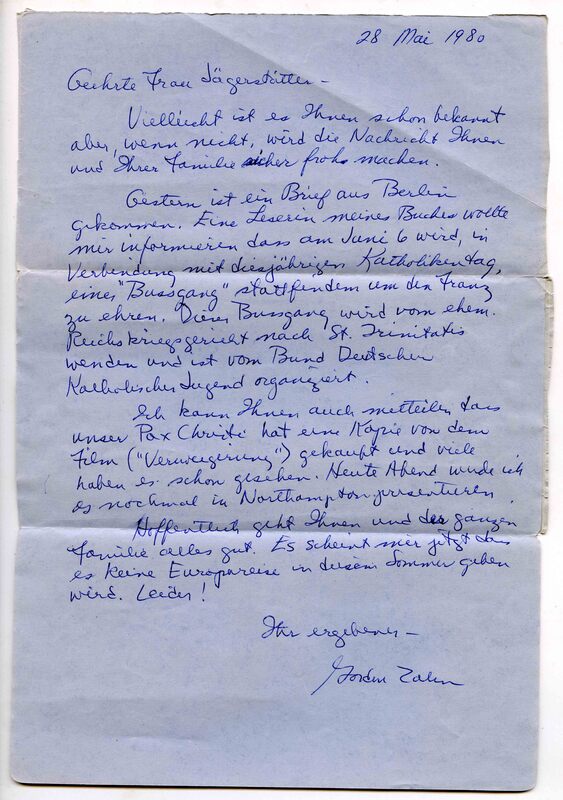 28 Mai 1980
Geehrte Frau Jägerstätter –
Vielleicht ist es Ihnen schon bekannt
aber, wenn nicht, wird die Nachricht Ihnen
und Ihrer Familie sicher frohs machen.
Gestern ist ein Brief aus Berlin
gekommen. Eine Leserin meines Buches wollte
mir informieren dass am Juni 6 wird, in
Verbindung mit diesjährigen Katholikentag,
eines "Bussgang" stattfindem um den Franz
zu ehren. Dieser Bussgang wird vom ehem.
Reichskriegsgericht nach St. Trinitatis
wenden und ist vom Bund Deutscher
Katholischer Jugend organiziert.
Ich kann Ihnen auch mitteilen dass
unser Pax Christi hat eine Kopie von dem
Film ("Verweigerung") gekauft und viele
haben es schon gesehen. Heute Abend wurde ich
es nochmal in Northampton presentieren.
Hoffentlich geht Ihnen und der ganzen
Familie alles gut. Es scheint mir jetzt das
es keine Europareise in diesem Sommer geben
wird. Leider!
Ihr ergebener –
Gordon Zahn